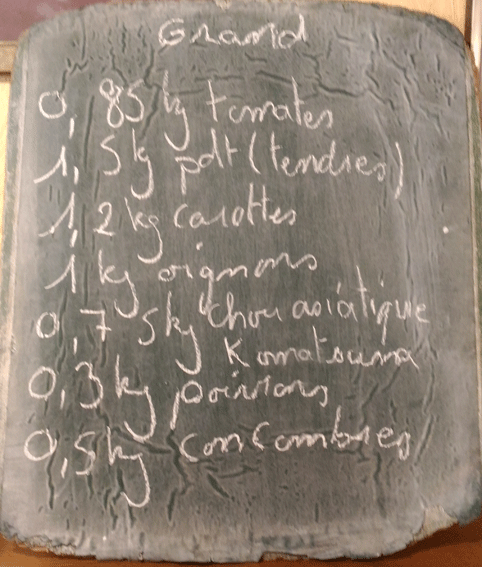 Grand
0,85 kg tomates
1,5 kg pdt (tendres)
1,2 kg carottes
1 kg oignons
0,75 kg chou asiatique
Komatsuna
0,3 kg poivrons
0,5 kg concombres